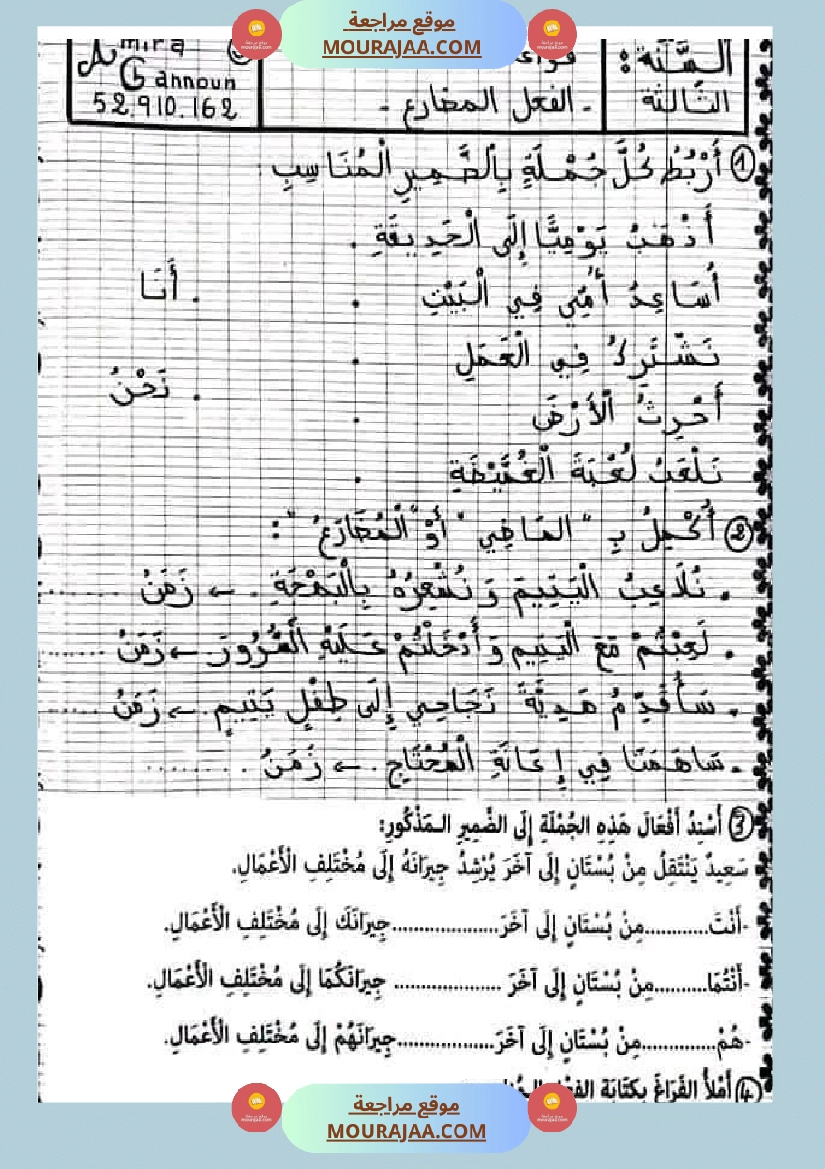 موقع مراجعة
MOURAJAA.COM
Amira
Gannoun
52.910.162
السّنة:
الثّالثة
- الفعل المضارع -
① أَرْبُطُ كُلَّ جُمْلَةٍ بِالضَّمِيرِ الْمُنَاسِبِ:
أَذْهَبُ يَوْمِيًّا إِلَى الْحَدِيقَةِ .
أُسَاعِدُ أُمِّي فِي الْبَيْتِ . . أَنَا
نَشْتَرِكُ فِي الْعَمَلِ .
. نَحْنُ
أَحْرِثُ الْأَرْضَ .
نَلْعَبُ لُعْبَةَ الْغُمَّيْضَةِ .
② أُكْمِلُ بِـ "المَاضِي" أَوْ "الْمُضَارَعُ" :
. نُلَاعِبُ الْيَتِيمَ وَ نُشْعِرُهُ بِالْبَهْجَةِ . ← زَمَنُ ........
. لَعِبْتُمْ مَعَ الْيَتِيمِ وَ أَدْخَلْتُمْ عَلَيْهِ السُّرُورَ ← زَمَنُ ........
. سَأُقَدِّمُ هَدِيَّةَ نَجَاحِي إِلَى طِفْلٍ يَتِيمٍ. ← زَمَنُ ........
. سَاهَمْنَا فِي إِعَانَةِ الْمُحْتَاجِ. ← زَمَنُ .........
③ أُسْنِدُ أَفْعَالَ هَذِهِ الجُمْلَةِ إِلَى الضَّمِيرِ الـمَذْكُورِ:
سَعِيدٌ يَنْتَقِلُ مِنْ بُسْتَانٍ إِلَى آخَرَ يُرْشِدُ جِيرَانَهُ إِلَى مُخْتَلِفِ الْأَعْمَالِ.
-أَنْتَ............مِنْ بُسْتَانٍ إِلَى آخَرَ....................جِيرَانَكَ إِلَى مُخْتَلِفِ الْأَعْمَالِ.
-أَنْتُمَا..........مِنْ بُسْتَانٍ إِلَى آخَرَ .................... جِيرَانَكُمَا إِلَى مُخْتَلِفِ الْأَعْمَالِ.
-هُمْ..............مِنْ بُسْتَانٍ إِلَى آخَرَ..................جِيرَانَهُمْ إِلَى مُخْتَلِفِ الْأَعْمَالِ.
④ أَمْلَأُ الفَرَاغَ بِكِتَابَةِ
موقع مراجعة
MOURAJAA.COM